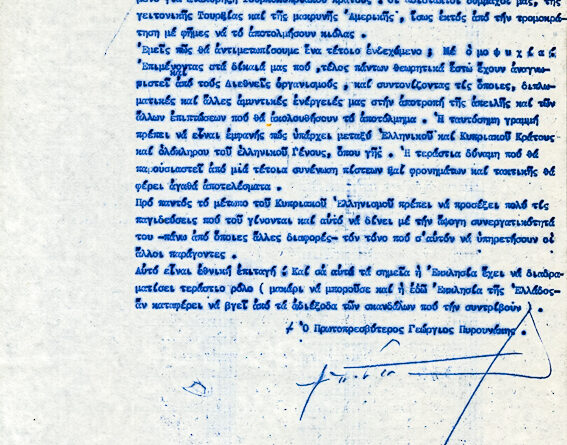 μόνο για αναγνώριση Τουρκοκυπριακού κράτους, οἱ αὐτόκλητοι σύμμαχοί μας, τῆς
γειτονικῆς Τουρκίας καί τῆς μακρυνῆς Ἀμερικῆς, ἴσως ἐκτός ἀπό τήν τρομοκρά-
τηση μέ φῆμες νά τό ἀποτολμήσουν κιόλας .
Ἐμεῖς πῶς θά ἀντιμετωπίσουμε ἕνα τέτοιο ἐνδεχόμενο ; Μέ ὁ μ ο ψ υ χ ί α ;
Ἐπιμένοντας στά δίκαιά μας πού ,τέλος πάντων θεωρητικά ἔστω ἔχουν ἀναγνω-
καί
ριστεῖ ἀπό τούς Διεθνεῖς ὀργανισμούς , καί συντονίζοντας τίς ὅποιες, διπλω-
ματικές καί ἄλλες ἀμυντικές ἐνέργειές μας στήν ἀποτροπή τῆς ἀπειλῆς καί τῶν
ἄλλων ἐπιπτώσεων πού θά ἀκολουθήσουν τό ἀποτόλμημα . Ἡ ταυτόσημη γραμμή
πρέπει νά εἶναι ἐμφανής πώς ὑπάρχει μεταξύ Ἑλληνικοῦ καί Κυπριακοῦ Κράτους
καί ὁλόκληρου τοῦ ἑλληνικοῦ Γένους, ὅπου γῆς . Ἡ τεράστια δύναμη πού θά
παρουσιαστεῖ ἀπό μιά τέτοια συνένωση πίστεων καί φρονημάτων καί τακτικῆς θά
φέρει ἀγαθά ἀποτελέσματα .
Πρό παντός τό μέτωπο τοῦ Κυπριακοῦ Ἑλληνισμοῦ πρέπει νά προσέξει πολύ τίς
παγιδεύσεις πού τοῦ γίνονται καί αὐτό νά δίνει μέ τήν ἄψογη συνεργατικότητά
του -πάνω ἀπό ὅποιες ἄλλες διαφορές- τόν τόνο πού σ'αὐτόν νά ὑπηρετήσουν οἱ
ἄλλοι παράγοντες .
Αὐτό εἶναι ἐθνική ἐπιταγή . Καί σέ αὐτά τά σημεῖα ἡ Ἐκκλησία ἔχει νά διαδρα-
ματίσει τεράστιο ρόλο ( μακάρι νά μποροῦσε καί ἡ ἐδῶ Ἐκκλησία τῆς Ἑλλάδος-
ἄν καταφέρει νά βγεῖ ἀπό τά ἀδιέξοδα τῶν σκανδάλων πού τήν συντρίβουν ) .
Ὁ Πρωτοπρεσβύτερος Γεώργιος Πυρουνάκης .